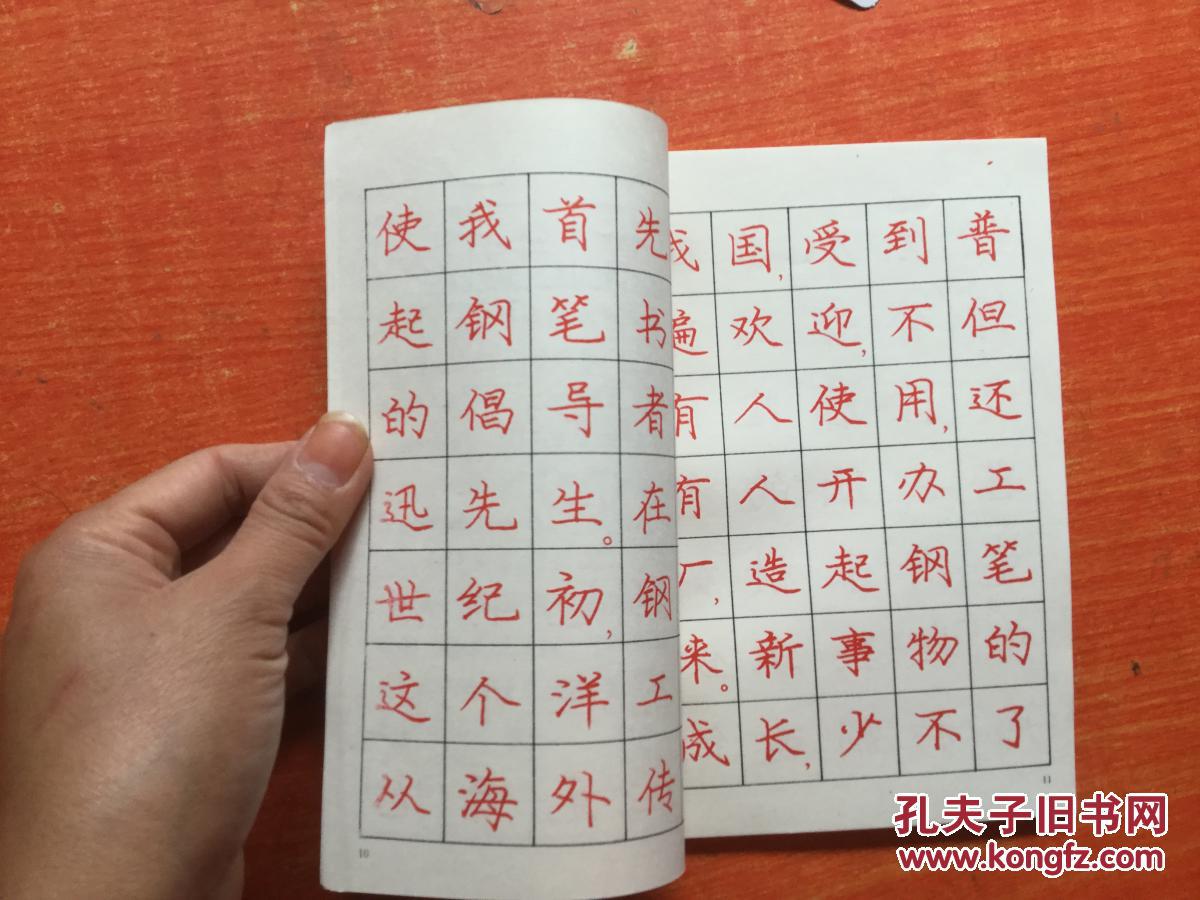 使我首先
起钢笔书
的倡导者
迅先生。在
世纪初,钢
这个洋工
从海外传
10
我国,受到普
遍欢迎,不但
有人使用,还
有人开办工
厂,造起钢笔
来。新事物的
成长,少不了
11
孔夫子旧书网
www.kongfz.com